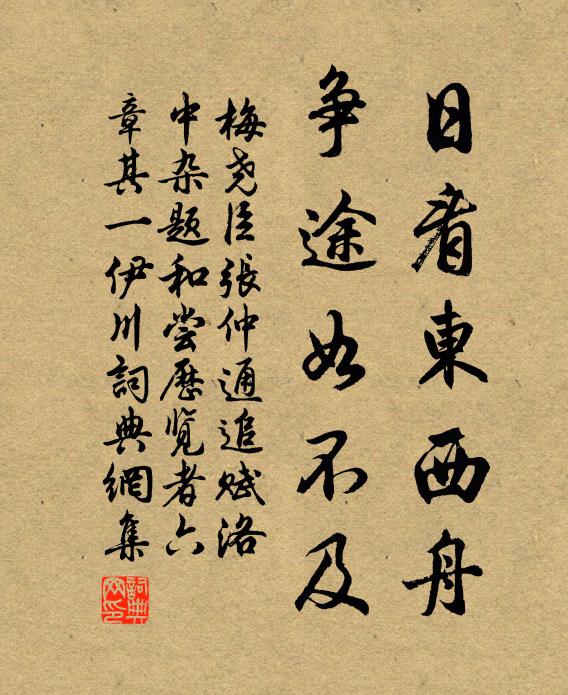 日看東西舟
争途如不及
梅尧臣張仲通追赋洛
中杂题和尝歷覧者六
章其一伊川詞典網集
詞典网印